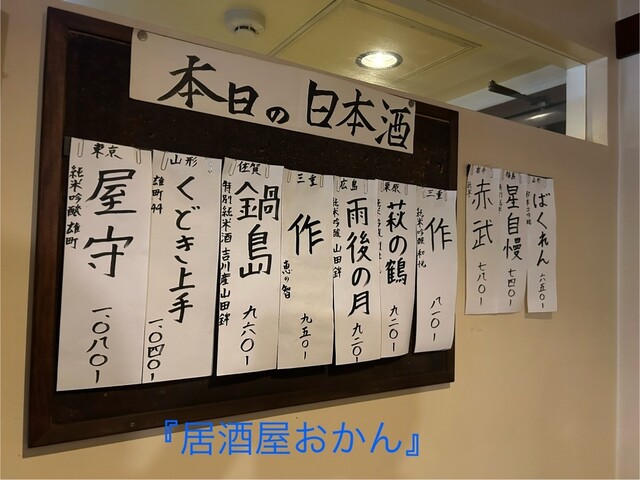 本日の日本酒
東京
屋守
純米吟醸 雄町
一、〇八〇一
山形
くどき上手
雄町44
一、〇四〇一
佐賀
鍋島
特別純米酒 吉川産山田錦
九六〇一
三重
作
恵の智
九五〇一
広島
雨後の月
純米吟醸 山田錦
九二〇一
萩の鶴
九二〇一
三重
作
純米吟醸 和悦
八一〇一
赤武
七八〇一
星自慢
七四〇一
ばくれん
六五〇一
『居酒屋おかん』